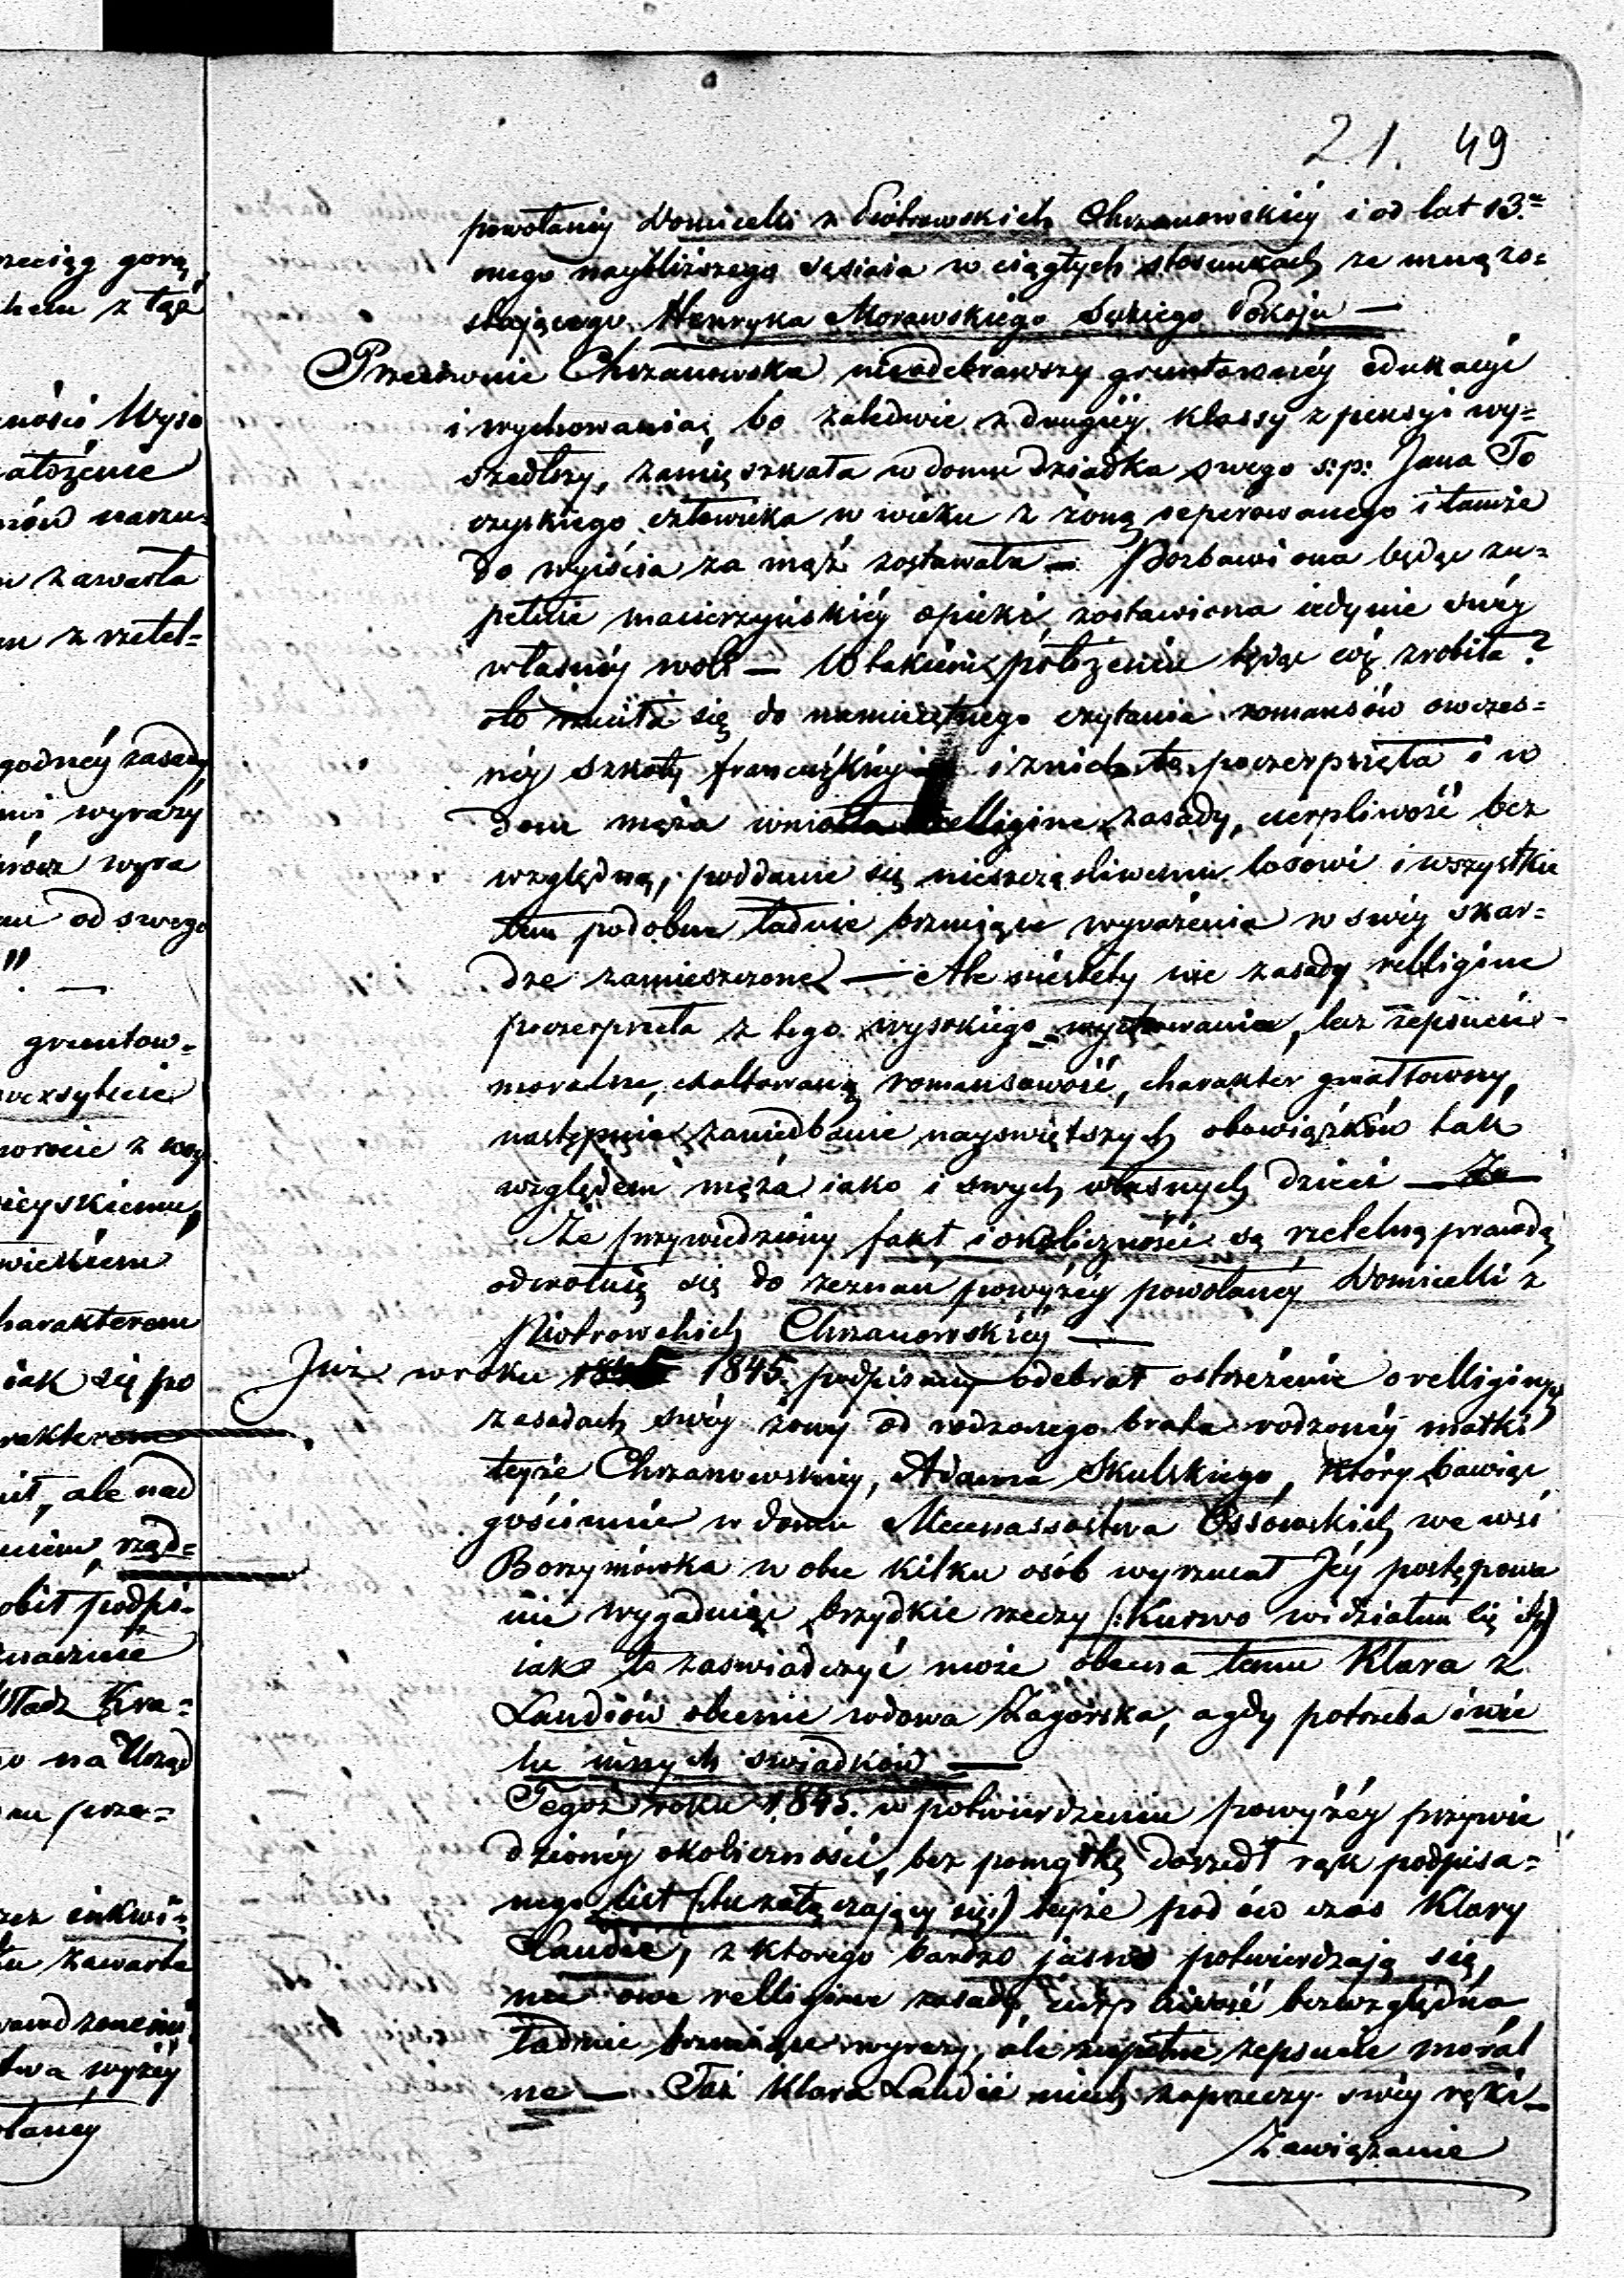 21. 49
powołaniy Domicelli z Piotrowskich Chrzanowskiéy i od lat 13.
mego naybliższego sąsiada w ciągłych stosunkach ze mną zo=
stającego Henryka Morawskiego Sędziego Pokoju —
Przeciwnie Chrzanowska nieodebrawszy gruntownéy edukacyi
i wychowania, bo zaledwie z drugiéy klassy z pensyi wy=
szedłszy, zamięszkała w domu dziadka swego s:p: Jana To
czyskiego człowieka w wieku z żoną seperowanego i tamże
do wyiścia za mąż zostawała — Pozbawiona będąc zu=
pełnie macierzyńskiéy opieki, zostawiona iedynie swéy
własnéy woli — W takiém położeniu będąc cóż zrobiła?
oto rzuciła się do namiętnego czytania romansów owczes=
néy szkoły francuzkiéy i z nich to poczerpnięta i w
dom męża wniosła relligine zasady, cierpliwość bez
względną, poddanie się nieszczęśliwemu losowi i wszystkie
tem podobne ładnie brzmiące wyrażenia w swéy skar=
dze zamieszczone — Ale niestety nie zasady relligine
poczerpneła z tego wysokiego wychowania, lecz zepsucie
moralne, exaltowaną romansowość, charakter gwałtowny,
następnie zaniedbanie nayswiętszych obowiązków tak
względem męża iako i swych własnych dzieci —
Że przywiedziony fakt i okoliczności są rzetelną prawdą
odwołuię się do zeznań powyżéy powołanéy Domicelli z
Piotrowskich Chrzanowskiéy —
Już w roku 1845 podpisany odebrał ostrzeżenie o relliginych
zasadach swéy żony od rodzonego brata rodzonéy matki
teyże Chrzanowskiéy, Adama Skulskiego, który bawiąc
gościnnie w domu Mecenassostwa Ossowskich we wsi
Borzymówka w obec kilku osób wyrzucał Jéy postępowa
nie wygaduiąc brzydkie rzeczy (:Kurwo widziałem cię itp)
iako to zaswiadczyć może obecna temu Klara z
Laudiów obecnie wdowa Zagórska, a gdy potrzeba i wie
lu innych swiadków —
Tegoż roku 1845. w potwierdzeniu powyżéy przywie
dzionéy okoliczności, bez pomyłkę doszedł rąk podpisa=
nego list (:tu załączający się:) teyże pod ów czas Klary
Laudie, z ktorego bardzo jasno potwierdzają się,
nie owe relligine zasady, cierpliwość bezwzględna
ładnie brzmiące wyrazy, ale zupełne zepsucie moral
ne — Taż Klara Laudie niech zaprzeczy swéy ręki —
Zawiązanie